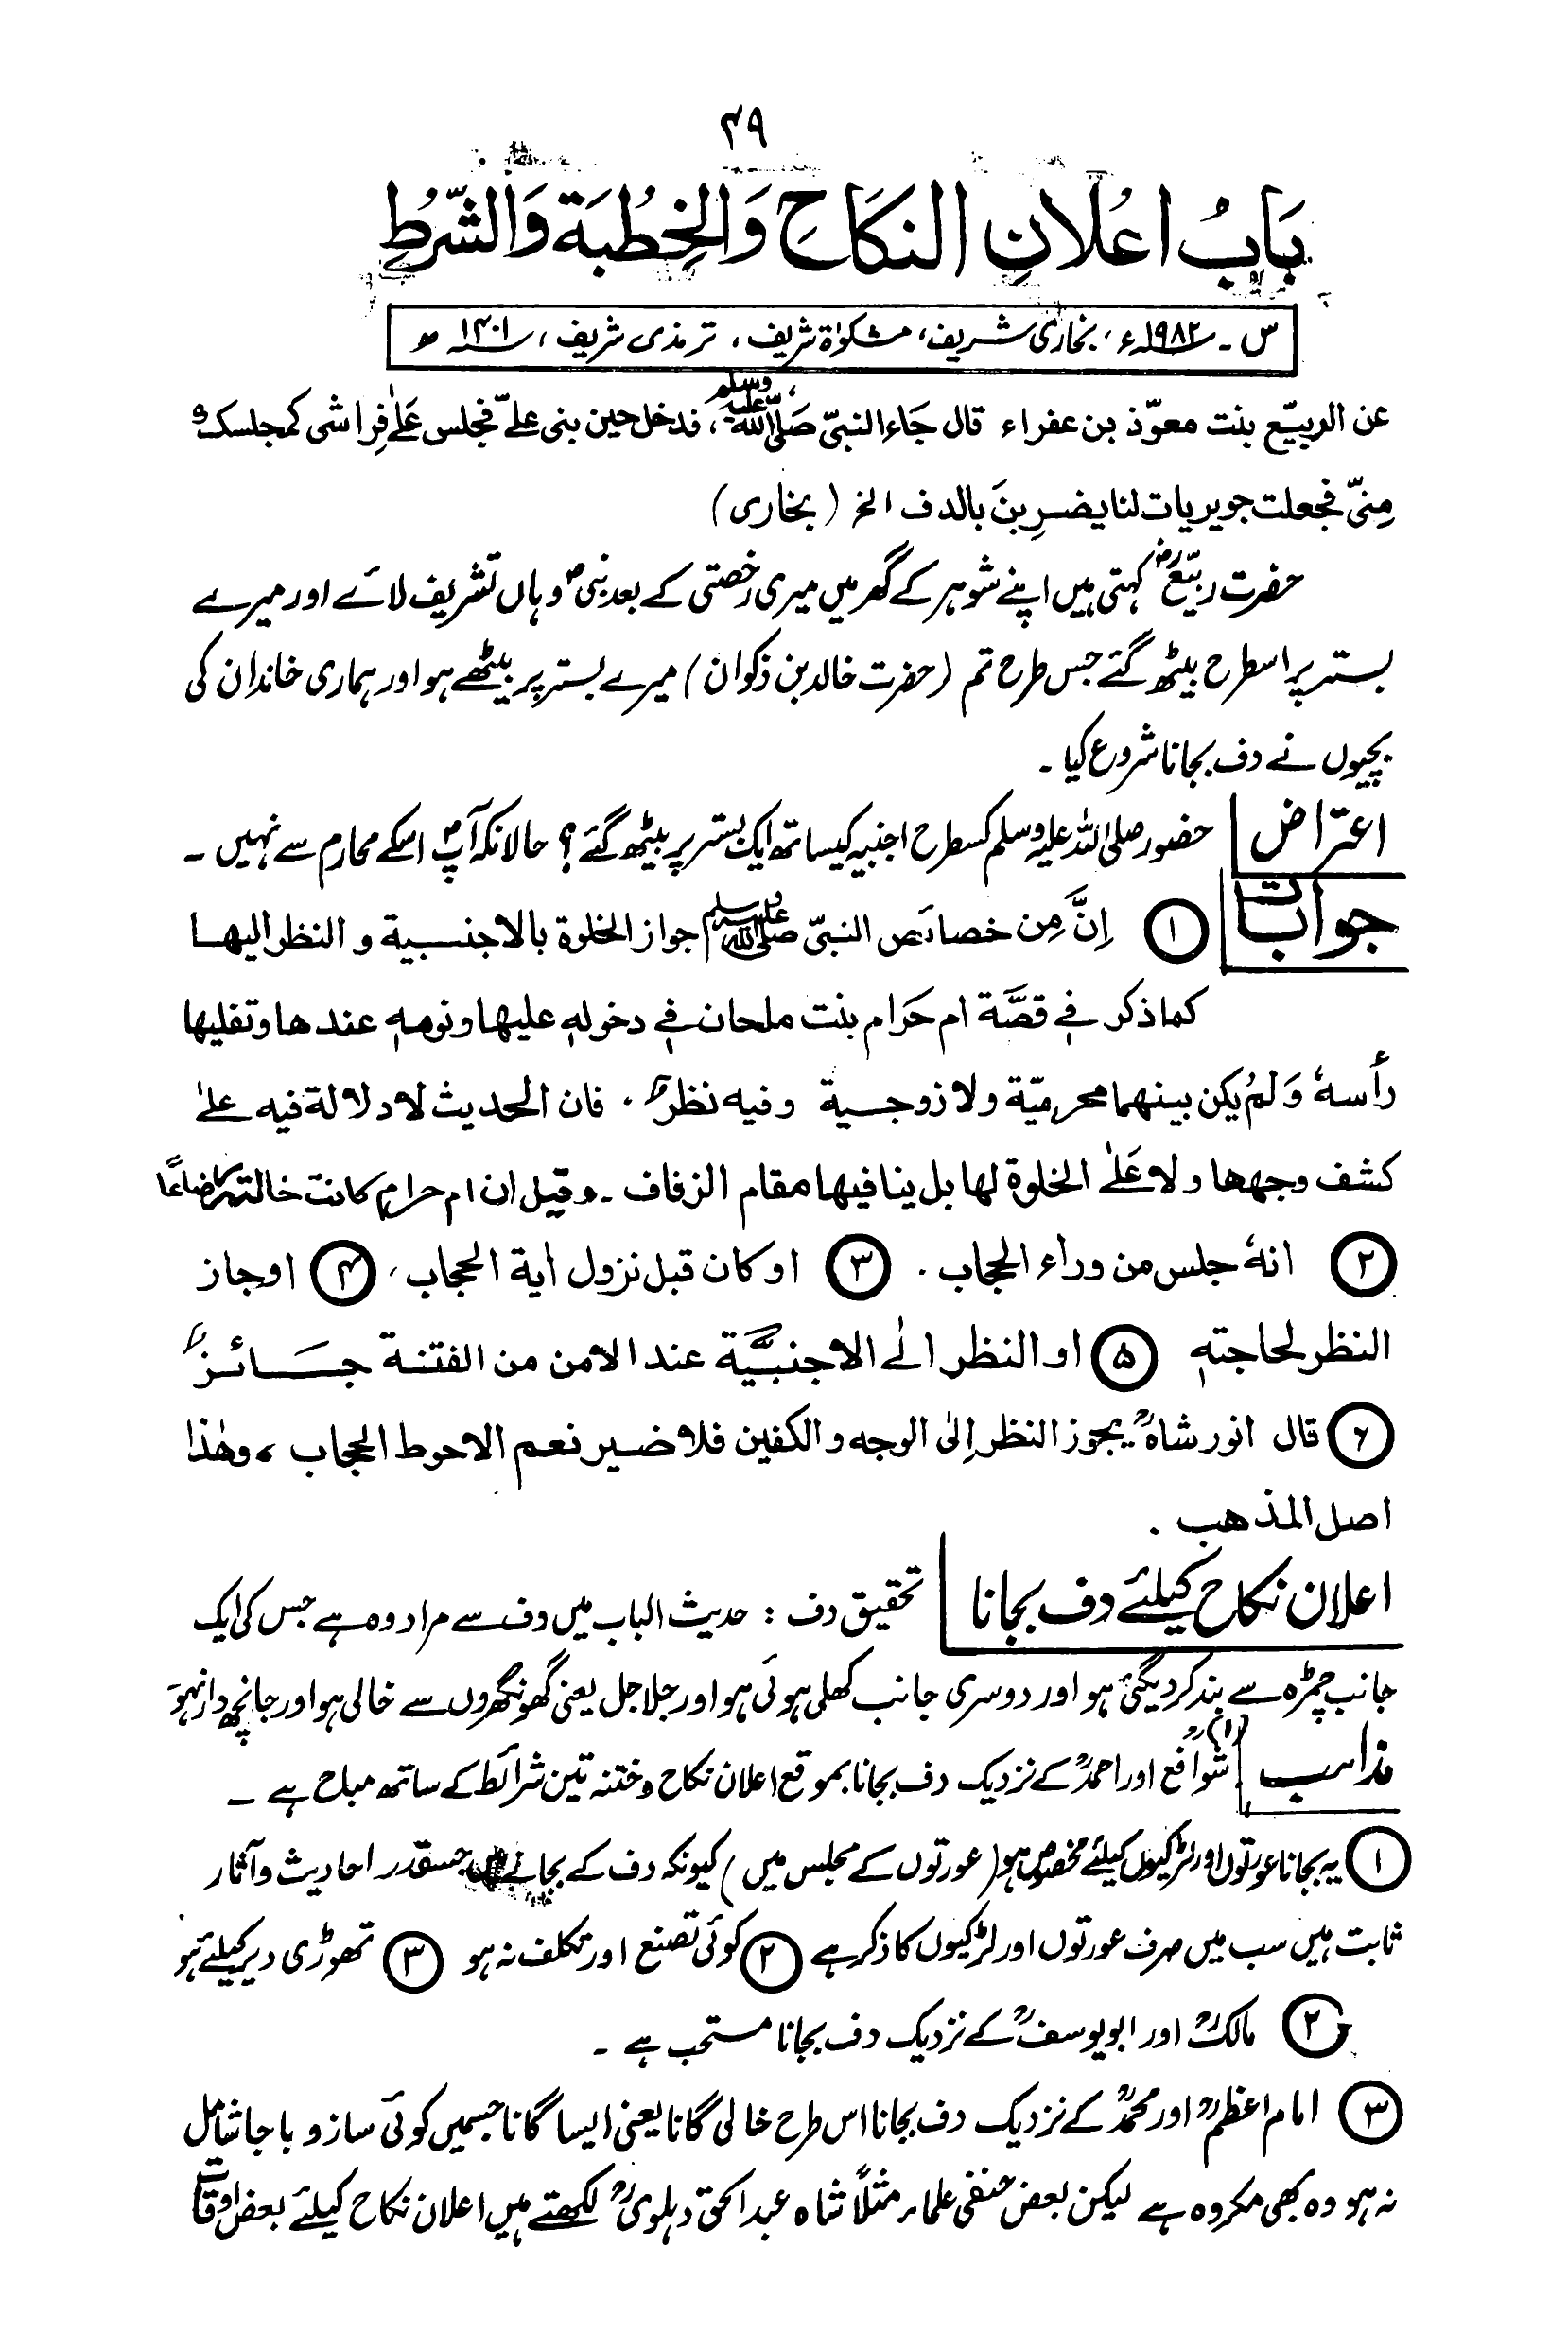 ۴۹
بَابُ اعْلَانِ النکَاحِ وَالخِطُبَة وَالشّرطِ
س ۔ ۱۹۸۲ء، بخاری شریف، مشکوٰۃ شریف، ترمذی شریف، ۱۴۰۱ھ
عن الربیّع بنت معوّذ بن عفراء قال جَاء النبیّ صَلَّی اللّٰہ علیہ وسلم، فدخل حین بنی علیّ فجلس عَلٰے فِراشی کمجلسک
مِنیّ فجعلت جویریات لنا یضرِبنَ بالدف الخ (بخاری)
حضرت ربیّعؓ کہتی ہیں اپنے شوہر کے گھر میں میری رخصتی کے بعد نبیؐ وہاں تشریف لائے اور میرے
بستر پر اسطرح بیٹھ گئے جس طرح تم (حضرت خالد بن ذکوان) میرے بستر پر بیٹھے ہو اور ہماری خاندان کی
بچیوں نے دف بجانا شروع کیا ۔
اعتراض حضور صلی اللہ علیہ وسلم کسطرح اجنبیہ کیساتھ ایک بستر پر بیٹھ گئے؟ حالانکہ آپؐ اسکے محارم سے نہیں ۔
جوابات ① اِنَّ مِن خصائص النبیّ صلی اللہ علیہ وسلم جواز الخلوة بالاجنبیة و النظر الیھا
کما ذکر فے قصَّة ام حَرام بنت ملحان فے دخولہٖ علیھا ونومہٖ عندھا وتفلیھا
رأسہٗ وَلمُ یکن بینھما محرمیّة ولا زوجیة وفیہ نظر ۔ فان الحدیث لا دلالة فیہ علےٰ
کشف وجھھا ولا عَلٰے الخلوة لھا بل ینافیھا مقام الزفاف ۔ وقیل ان ام حرام کانت خالتہ رضاعًا
② انہٗ جلس من وراء الحجاب . ③ او کان قبل نزول اٰیة الحجاب، ④ او جاز
النظر لحاجتہٖ ⑤ او النظر الے الاجنبیَّة عند الامن من الفتنة جَائز
⑥ قال انور شاہؒ یجوز النظر اِلٰی الوجہ والکفین فلا ضیر نعم الاحوط الحجاب، وھٰذا
اصل المذھب .
اعلان نکاح کیلئے دف بجانا تحقیق دف : حدیث الباب میں دف سے مراد وہ ہے جس کی ایک
جانب چمڑہ سے بند کردیگئی ہو اور دوسری جانب کھلی ہوئی ہو اور جلاجل یعنی گھونگھروں سے خالی ہو اور جانجھ دار نہو
مذاہب (۱) شوافعؒ اور احمدؒ کے نزدیک دف بجانا بموقع اعلان نکاح و ختنہ تین شرائط کے ساتھ مباح ہے ۔
① یہ بجانا عورتوں اور لڑکیوں کیلئے مخصوص ہو (عورتوں کے مجلس میں) کیونکہ دف کے بجانے میں جسقدر احادیث وآثار
ثابت ہیں سب میں صرف عورتوں اور لڑکیوں کا ذکر ہے ② کوئی تصنع اور تکلف نہ ہو ③ تھوڑی دیر کیلئے ہو
② مالکؒ اور ابویوسفؒ کے نزدیک دف بجانا مستحب ہے ۔
③ امام اعظمؒ اور محمدؒ کے نزدیک دف بجانا اس طرح خالی گانا یعنی ایسا گانا جسمیں کوئی ساز و باجا شامل
نہ ہو وہ بھی مکروہ ہے لیکن بعض حنفی علماء مثلًا شاہ عبدالحق دہلویؒ لکھتے ہیں اعلان نکاح کیلئے بعض اوقات